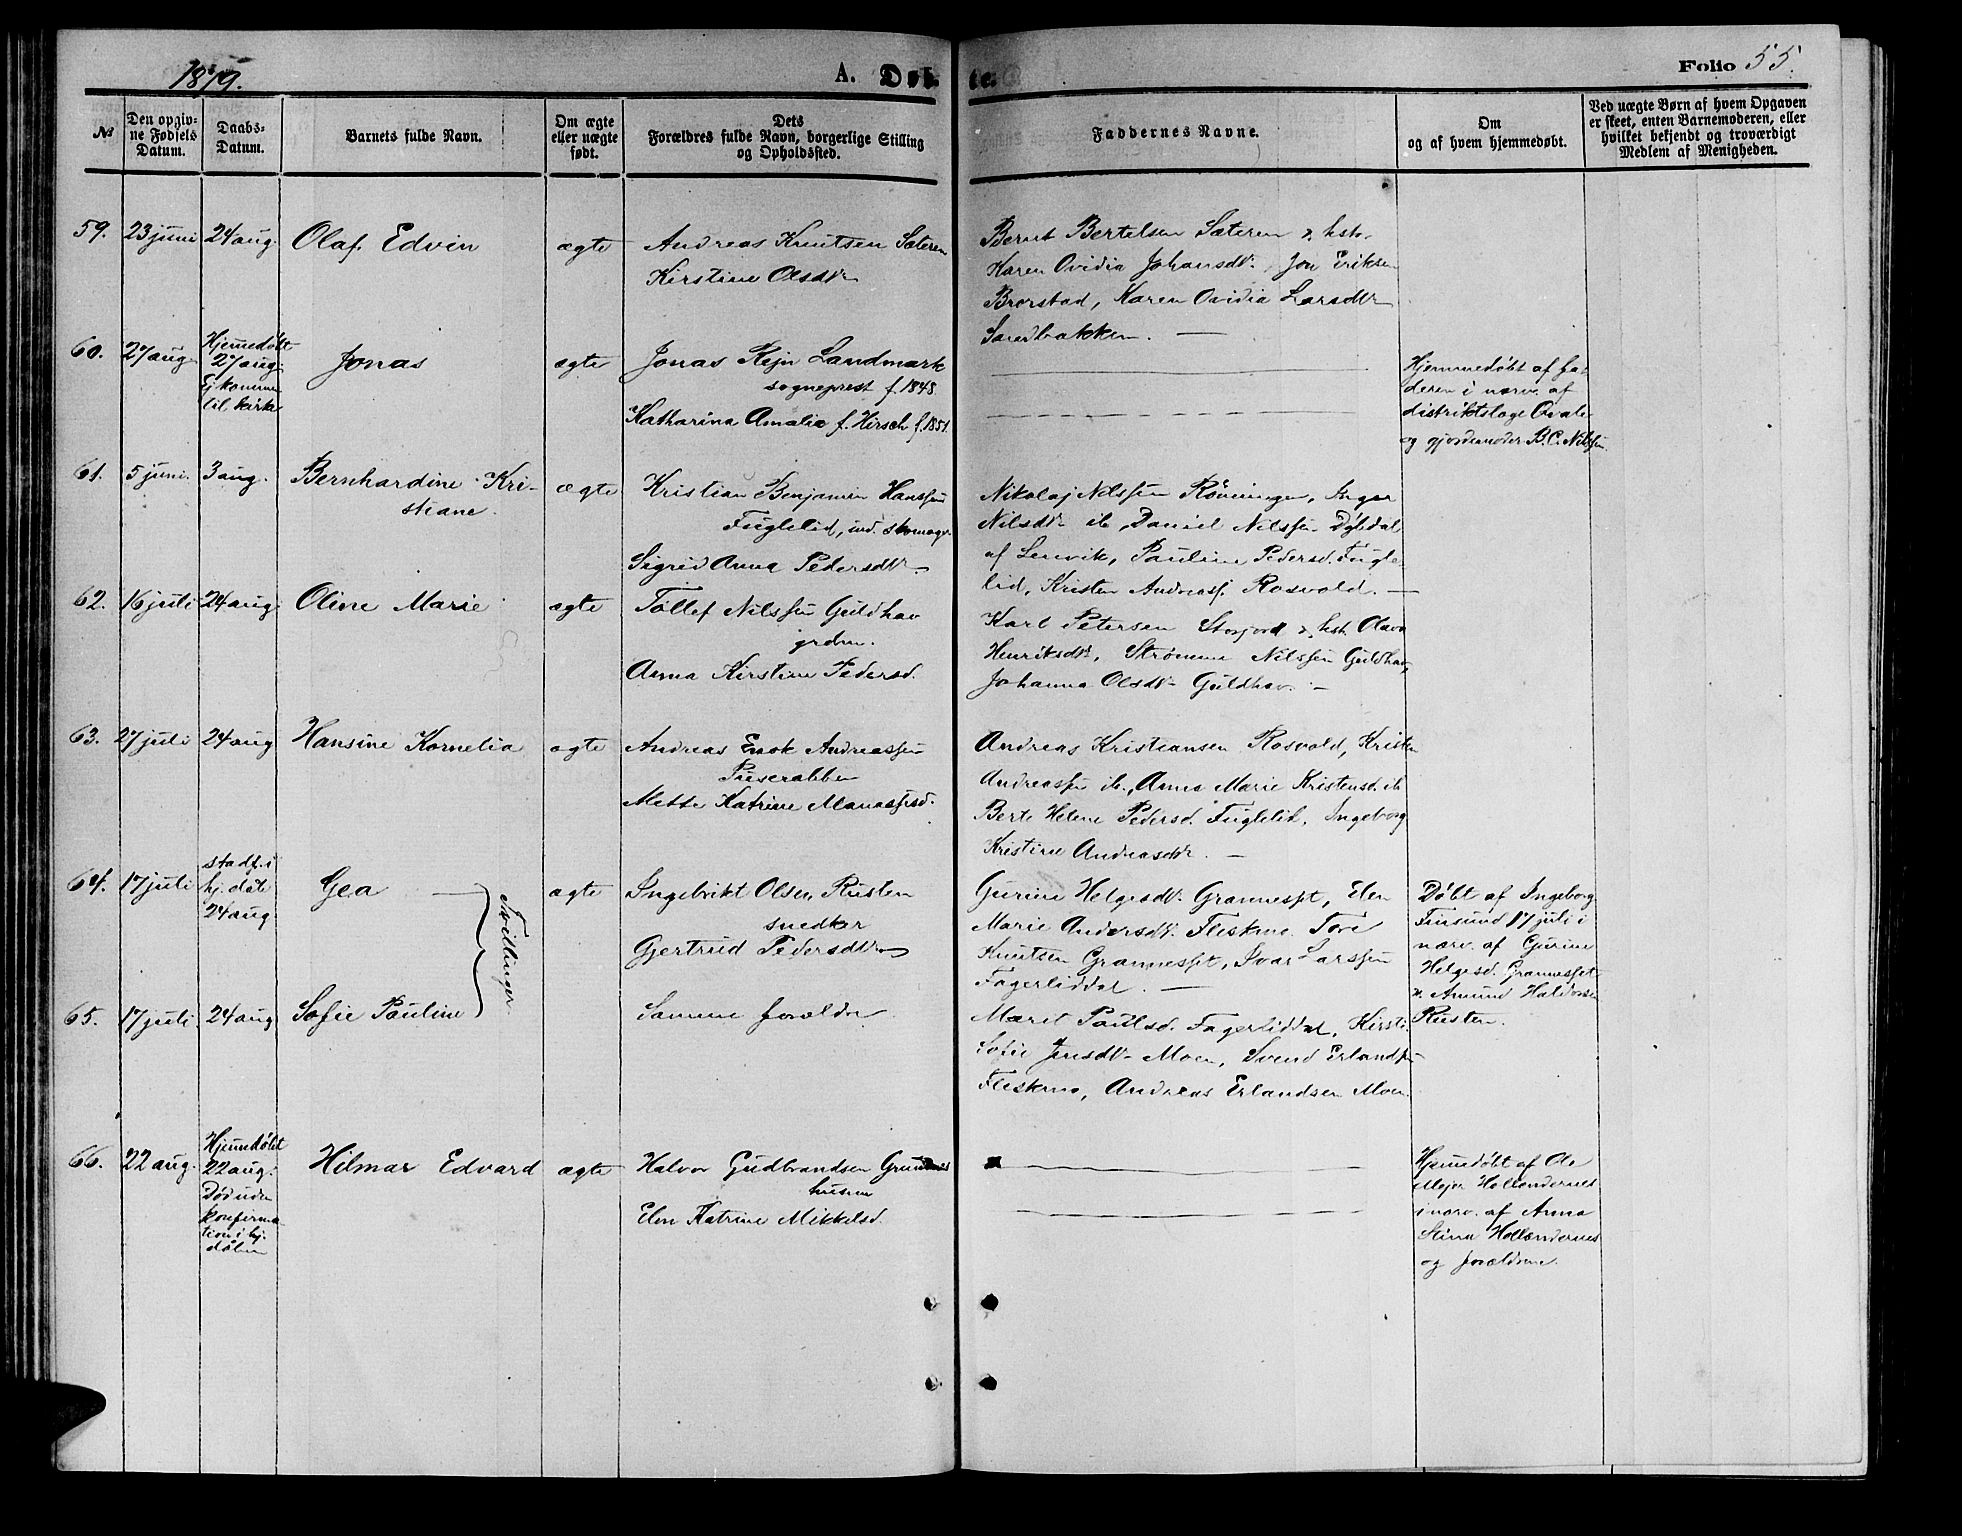 1879.
A. Døbte.
Folio 55.
№
Den opgiv-
ne Fødsels
Datum.
Daabs-
Datum.
Barnets fulde Navn.
Om ægte
eller uægte
født.
Dets
Forældres fulde Navn, borgerlige Stilling
og Opholdssted.
Faddernes Navne.
Om
og af hvem hjemmedøbt.
Ved uægte Børn af hvem Opgaven
er skeet, enten Barnemoderen, eller
hvilket bekjendt og troværdigt
Medlem af Menigheden.
59. 23 juni 24 aug. Olaf Edvin ægte
Andreas Knutsen Sæteren
Kirstine Olsdtr
Bernt Bertelsen Sæteren & hstr.
Karen Ovidia Johansdtr. Jon Eriksen
Brorstad, Karen Ovidia Larsdtr
Sandbakken. —
60. 27 aug.
Hjemmedøbt
27 aug.
Ej kommen
til kirke
Jonas
ægte
Jonas Rejn Landmark
sogneprest f. 1848
Katharina Amalie f. Hirsch f. 1851.
Hjemmedøbt af fa-
deren i nærv. af
distriktslæge Qvale
og gjordemoder B. C. Nilsen
61. 5 juni. 3 aug.
Bernhardine Kri-
stiane.
ægte
Kristian Benjamin Hanssen
Fuglelid, ind. skomager
Sigrid Anna Pedersdtr.
Nikolaj Nilssen Rønningen, Inger
Nilsdtr ib, Daniel Nilssen Dybdal
af Lenvik, Pauline Pedersd. Fugle-
lid, Kristen Andreass. Rosvold. —
62. 16 juli 24 aug. Oline Marie ægte
Tollef Nilssen Guldhav
grdm.
Anna Kirstine Pedersd.
Karl Petersen Storjord & hstr Olava
Henriksdtr, Strømme Nilssen Guldhav,
Johanna Olsdtr Guldhav. —
63. 27 juli 24 aug Hansine Kornelia ægte
Andreas Enok Andreassen
Piiserabben
Mette Katrine Manassesd.
Andreas Kristiansen Rosvold, Kristen
Andreassen ib., Anna Marie Kristensd. ib
Berte Helene Pedersd. Fuglelid, Ingeborg
Kristine Andreasdtr. —
64. 17 juli
stadf. i
hj. dåb
24 aug
Gea —
Tvillinger
ægte
Ingebrikt Olsen Rusten
snedker
Gjertrud Pedersdtr
Gurine Helgesdtr. Grannesset, Elen
Marie Andersdtr. Fleskmo. Tore
Knutsen Grannesset, Ivar Larssen
Fagerliddal. —
Døbt af Ingeborg
Finsund 17 juli i
nærv. af Gurine
Helgesd. Grannesset
& Amund Haldorsen
Rusten.
65. 17 juli 24 aug Sofie Pauline
Samme forældre
Marit Paulsd. Fagerliddal, Kirsti
Sofie Jensdtr Moen, Svend Erlandsen
Fleskmo, Andreas Erlandsen Moen.
66. 22 aug.
Hjemmedøbt
22 aug.
Død uden
konfirma-
tion i hj.
dåben
Hilmar Edvard
ægte
Halvor Gudbrandsen Grundnes
husm
Elen Katrine Mikkelsd.
Hjemmedøbt af Ole
Mejer Hollændernes
i nærv. af Anna
Stina Hollændernes
og forældrene.